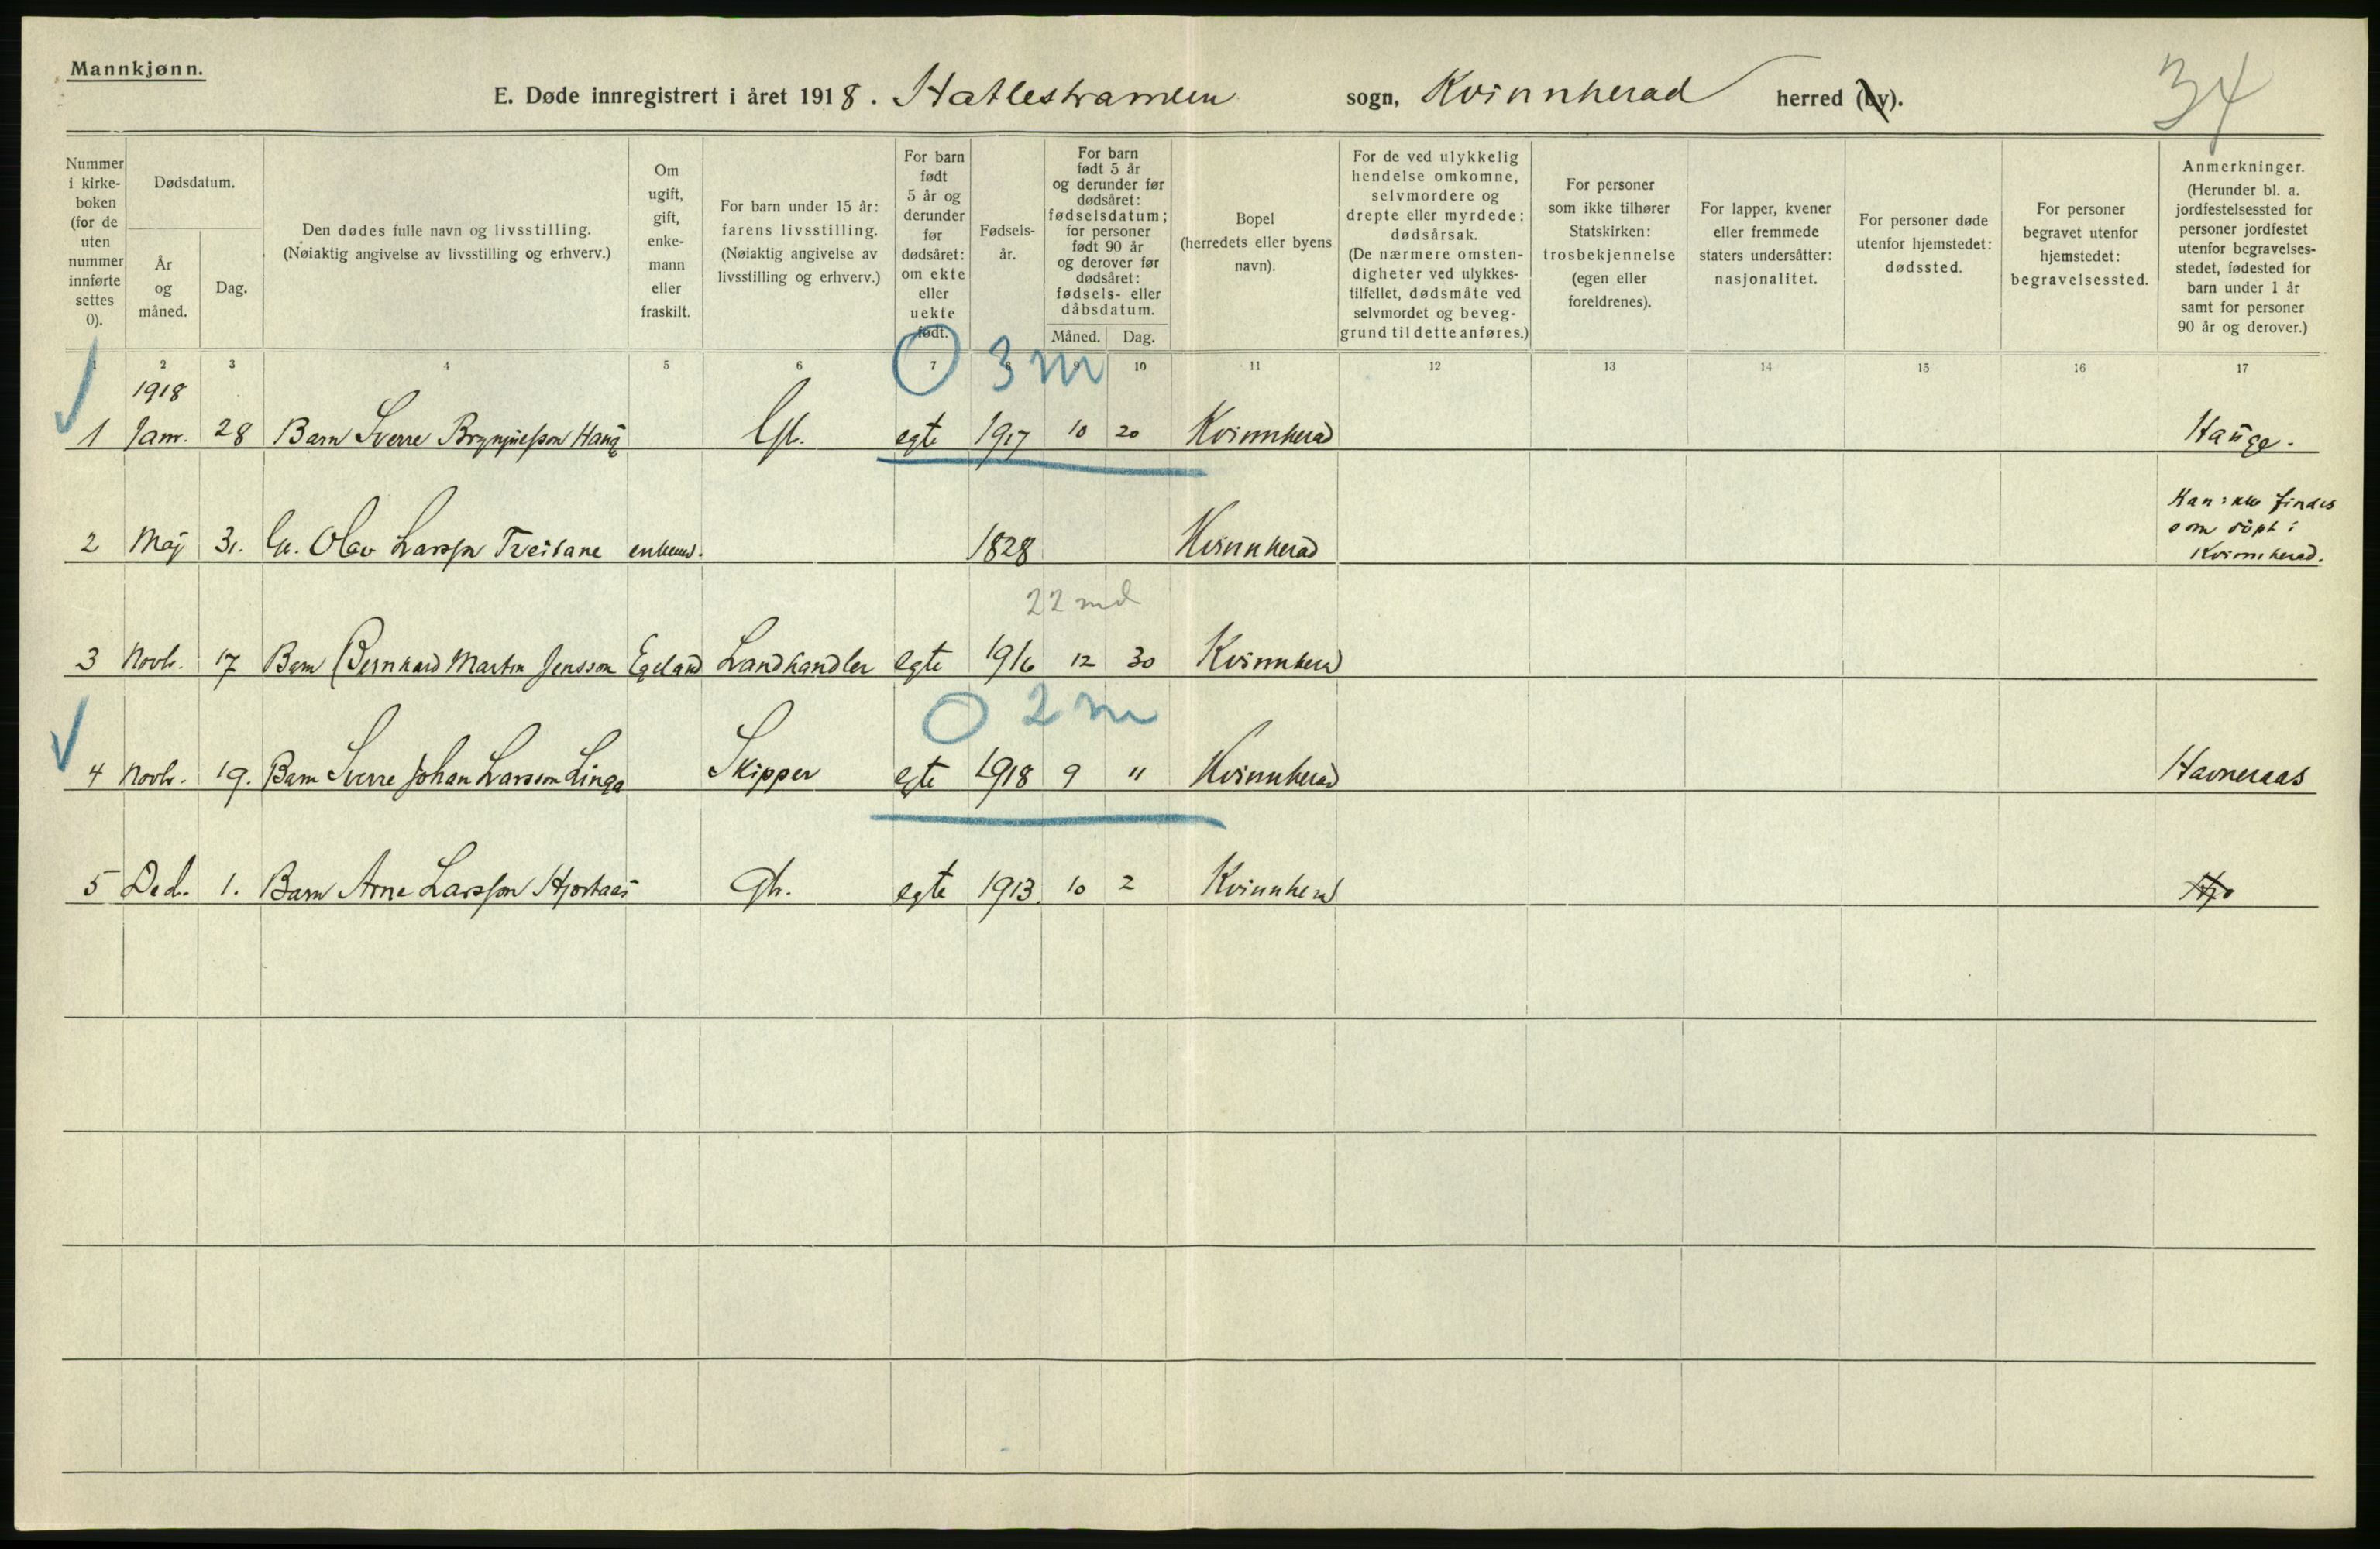 Mannkjønn.
E. Døde innregistrert i året 1918. Hatlestranden sogn, Kvinnherad herred (by).
34
Nummer i kirkeboken (for de uten nummer innførte settes 0).
Dødsdatum.
År og måned.
Dag.
Den dødes fulle navn og livsstilling.
(Nøiaktig angivelse av livsstilling og erhverv.)
Om ugift, gift, enkemann eller fraskilt.
For barn under 15 år: farens livsstilling.
(Nøiaktig angivelse av livsstilling og erhverv.)
For barn født 5 år og derunder før dødsåret: om ekte eller uekte født.
Fødselsår.
For barn født 5 år og derunder før dødsåret: fødselsdatum; for personer født 90 år og derover før dødsåret: fødsels- eller dåbsdatum.
Måned.
Dag.
Bopel
(herredets eller byens navn).
For de ved ulykkelig hendelse omkomne, selvmordere og drepte eller myrdede: dødsårsak.
(De nærmere omstendigheter ved ulykkestilfellet, dødsmåte ved selvmordet og beveggrund til dette anføres.)
For personer som ikke tilhører Statskirken: trosbekjennelse (egen eller foreldrenes).
For lapper, kvener eller fremmede staters undersåtter: nasjonalitet.
For personer døde utenfor hjemstedet: dødssted.
For personer begravet utenfor hjemstedet: begravelsessted.
Anmerkninger.
(Herunder bl. a. jordfestelsessted for personer jordfestet utenfor begravelsesstedet, fødested for barn under 1 år samt for personer 90 år og derover.)
1 2 3 4 5 6 7 8 9 10 11 12 13 14 15 16 17
1918
0 3 m
1 Janr. 28 Barn Sverre Brynjulfsson Haug egte 1917 10 20 Kvinnherad Hauge.
2 Maj 31. Olav Larsson Tveitane enkem. 1828 Kvinnherad Kan ikke findes
som døpt i
Kvinnherad.
22 md
3 Novbr. 17 Barn Bernhard Martin Jensson Egeland Landhandler egte 1916 12 30 Kvinnherad
0 2 m
4 Novbr. 19. Barn Sverre Johan Larsson Linga Skipper egte 1918 9 11 Kvinnherad Havneraas
5 Ded. 1. Barn Arne Larsson Hjortaas Gb. egte 1913. 10 2 Kvinnherad